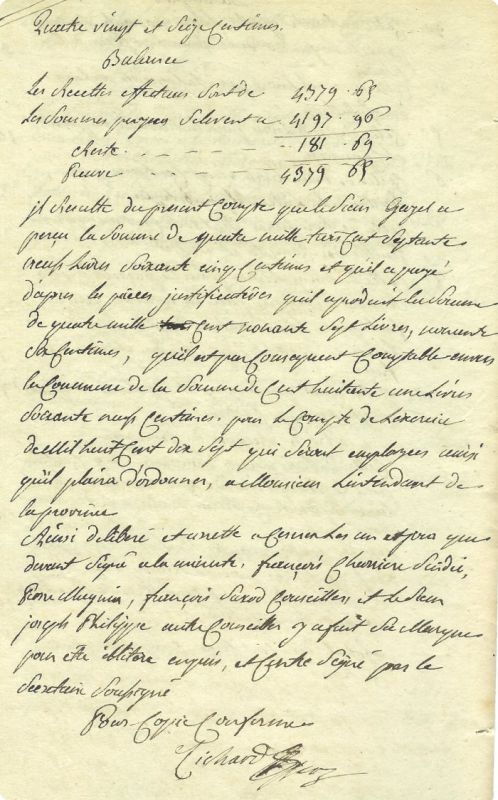 Quatre vingt et Seize Centimes.
Balance
Les Recettes effectives sont de 4379 . 65
Les Sommes payées s'elevent a 4197 . 96
Reste 181 . 69
Preuve 4379 65
jl Resulte du present Compte que le Sieur a
perçu la Somme de quatre mille trois Cent Septante
neuf Livres Soixante cinq Centimes et qu'il a payé
d'apres les pièces justificatives qu'il a produit la Somme
de quatre mille Cent nonante Sept Livres, nonante
Six Centimes, qu'il est par Consequent Comptable envers
la Commune de la Somme de Cent huitante une Livres
Soixante neuf Centimes. pour le Compte de Lexercice
de Mil huit Cent dix Sept qui Seront employees ainsi
qu'il plaira d'ordonner, a Monsieur Lintendant de
la province
Ainsi deliberé et arretté a les an et jour que
devant Signé a la minute. françois Sindic,
Pierre Muguin, françois Conseillers et le Sieur
joseph Philippe autre Conseiller y a fait Sa Marque
pour etre illitéré enquis, et Contre Signé par le
Secretaire Soussigné
Pour Copie Conforme
Richard